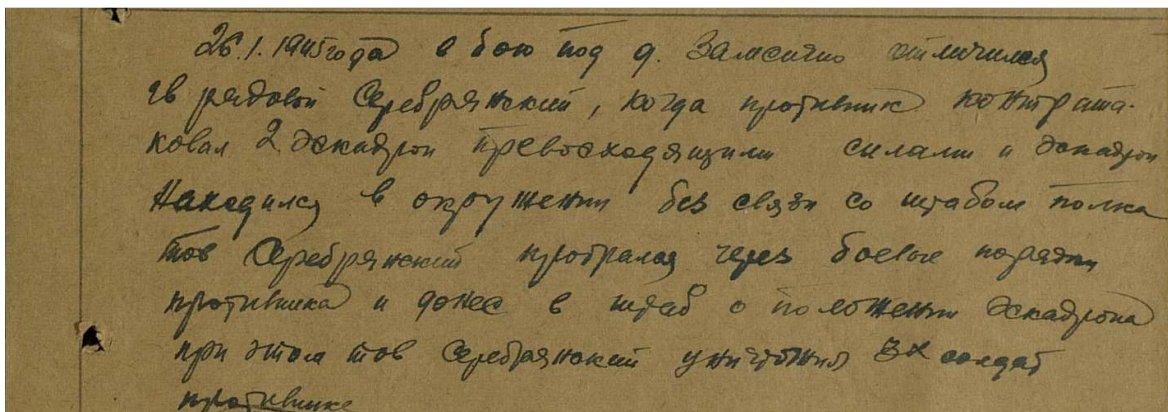 26.1.1945 года в бою под д. отличился
гв рядовой Серебрянский, когда противник контрата-
ковал 2 эскадрон превосходящими силами и эскадрон
находился в окружении без связи со штабом полка
тов Серебрянский пробрался через боевые порядки
противника и донес в штаб о положении эскадрона
при этом тов Серебрянский уничтожил 3х солдат
противника